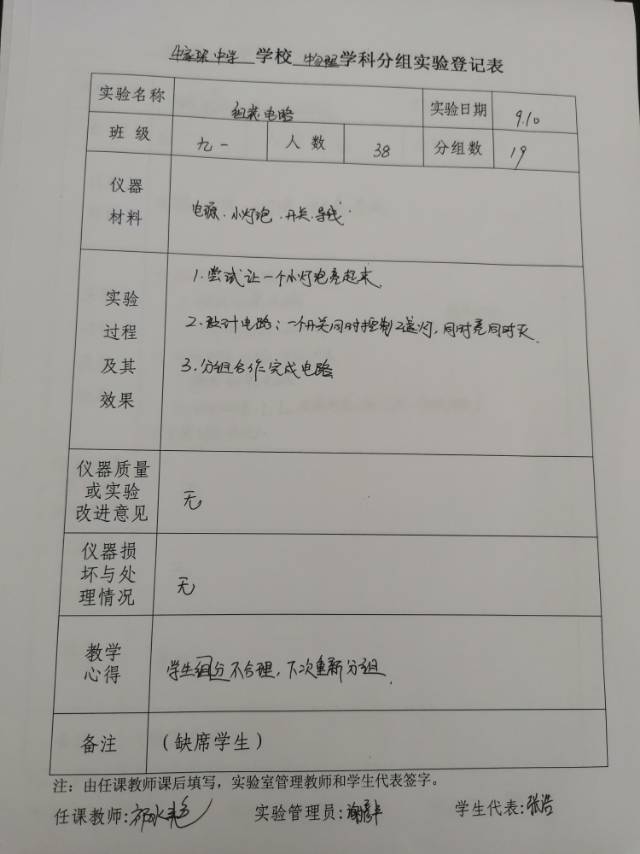 中学 学校 物理 学科分组实验登记表
实验名称 组装电路 实验日期 9.10
班级 九一 人数 38 分组数 19
仪器
材料
电源、小灯泡、开关、导线.
实验
过程
及其
效果
1.尝试让一个小灯泡亮起来.
2.设计电路:一个开关同时控制2盏灯,同时亮同时灭.
3.分组合作完成电路
仪器质量
或实验
改进意见
无
仪器损
坏与处
理情况
无
教学
心得
学生组分不合理,下次重新分组.
备注 (缺席学生)
注:由任课教师课后填写,实验室管理教师和学生代表签字。
任课教师: 实验管理员: 学生代表:张浩